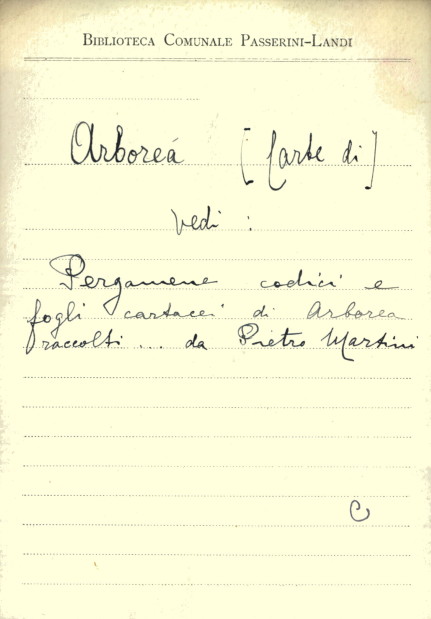 BIBLIOTECA COMUNALE PASSERINI-LANDI
Arborea [Carte di]
vedi :
Pergamene codici e
fogli cartacei di Arborea
raccolti ... da Pietro Martini
C